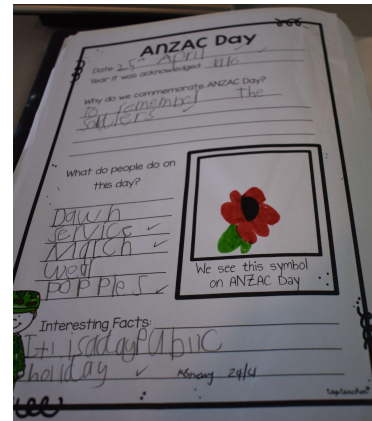 ANZAC Day
Date: 25th April
Year it was acknowledged 1916
Why do we commemorate ANZAC Day?
To remember the
solders
What do people do on
this day?
Dawn
service
March
wear
poppies
We see this symbol
on ANZAC Day
Interesting Facts:
It isadaypublic
holiday
24/4
topteacher